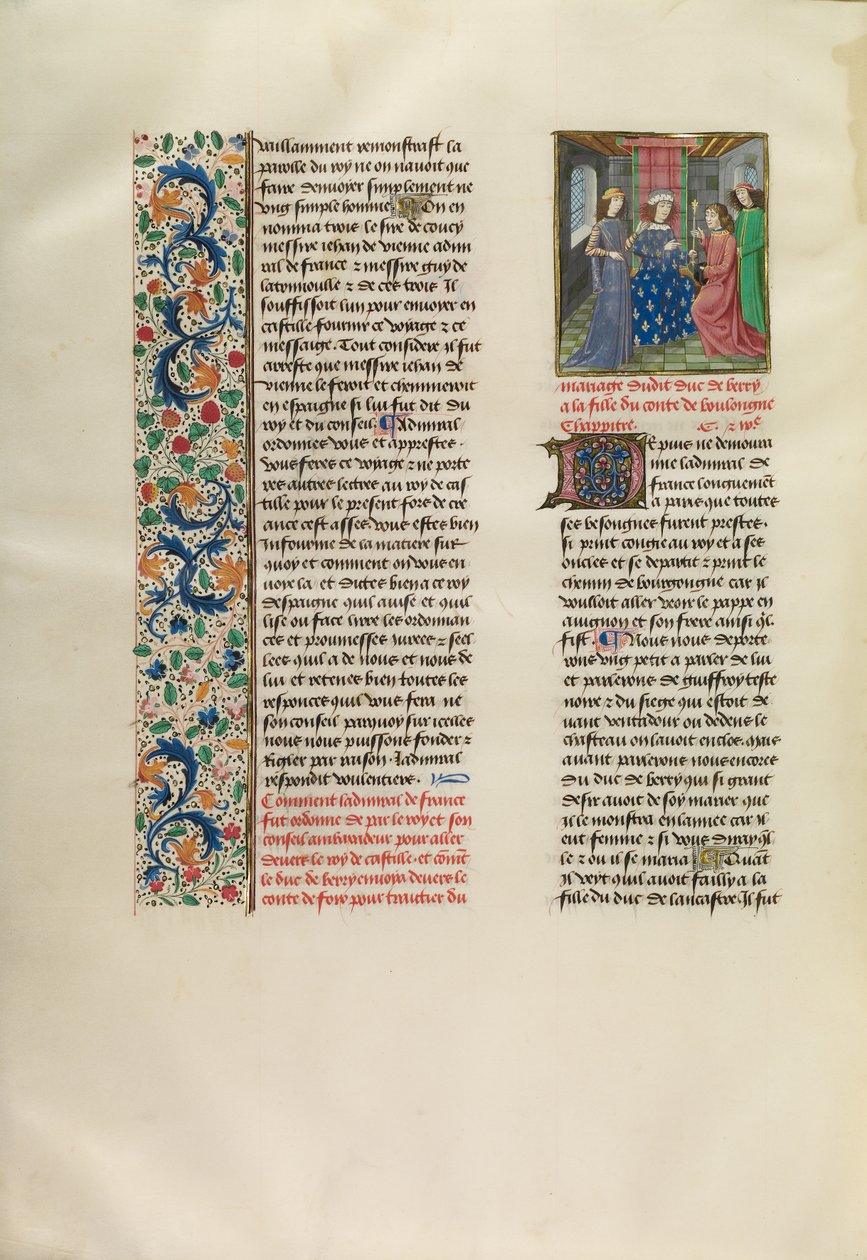 vaillamment remonstrast la
parolle du roy ne on navoit que
faire denvoyer simplement ne
vng simple homme On en
nomma trois le sire de coucy
messire iehan de vienne admi
ral de france ⁊ messire guy de
latrimoulle ⁊ de ces trois Il
souffissoit lun pour envoyer en
castille fournir ce voyage ⁊ ce
messaige. Tout considere il fut
arreste que messire iehan de
vienne le feroit et chemineroit
en espaigne si lui fut dit du
roy et du conseil. Admiral
ordonnes vous et apprestes.
vous feres ce voyage ⁊ ne porte
res autres lectres au roy de cas
tille pour le present fors de cre
ance cest asses vous estes bien
Infourme de la matiere sur
quoy et comment on vous en
voye la et dictes bien a ce roy
despaigne quil auise et quil
lise ou face lire les ordonnan
ces et proumesses iurees ⁊ seel
lees quil a de nous et nous de
lui et retenes bien toutes les
responces quil vous fera ne
son conseil parquoy sur icelles
nous nous puissons fonder ⁊
Rigler par raison. Ladmiral
respondit voulentiers.
Comment ladmiral de france
fut ordonne de par le roy et son
conseil ambaxadeur pour aller
devers le roy de castille. et comt
le duc de berry envoya devers le
conte de foix pour traittier du
mariage dudit duc de berry
a la fille du conte de boulongne
Chappitre. C. ⁊ iiiie
DE puis ne demoura
mie ladmiral de
france longuement
a paris que toutes
ses besongnes furent prestes.
si print congie au roy et a ses
oncles et se departit ⁊ print le
chemin de bourgongne car il
vouloit aller veoir le pappe en
auignon et son frere ainsi ql
fist. Nous nous deporte
rons vng petit a parler de lui
et parlerons de guiffroy teste
noire ⁊ du siege qui estoit de
uant ventadour ou dedens le
chasteau on lauoit enclos. Mais
auant parlerons nous encores
du duc de berry qui si grant
desir auoit de soy marier que
il le monstra en lannee car il
eut femme ⁊ si vous diray ql
le ⁊ ou il se maria Quant
Il veyt quil auoit failly a la
fille du duc de lancastre Il fut